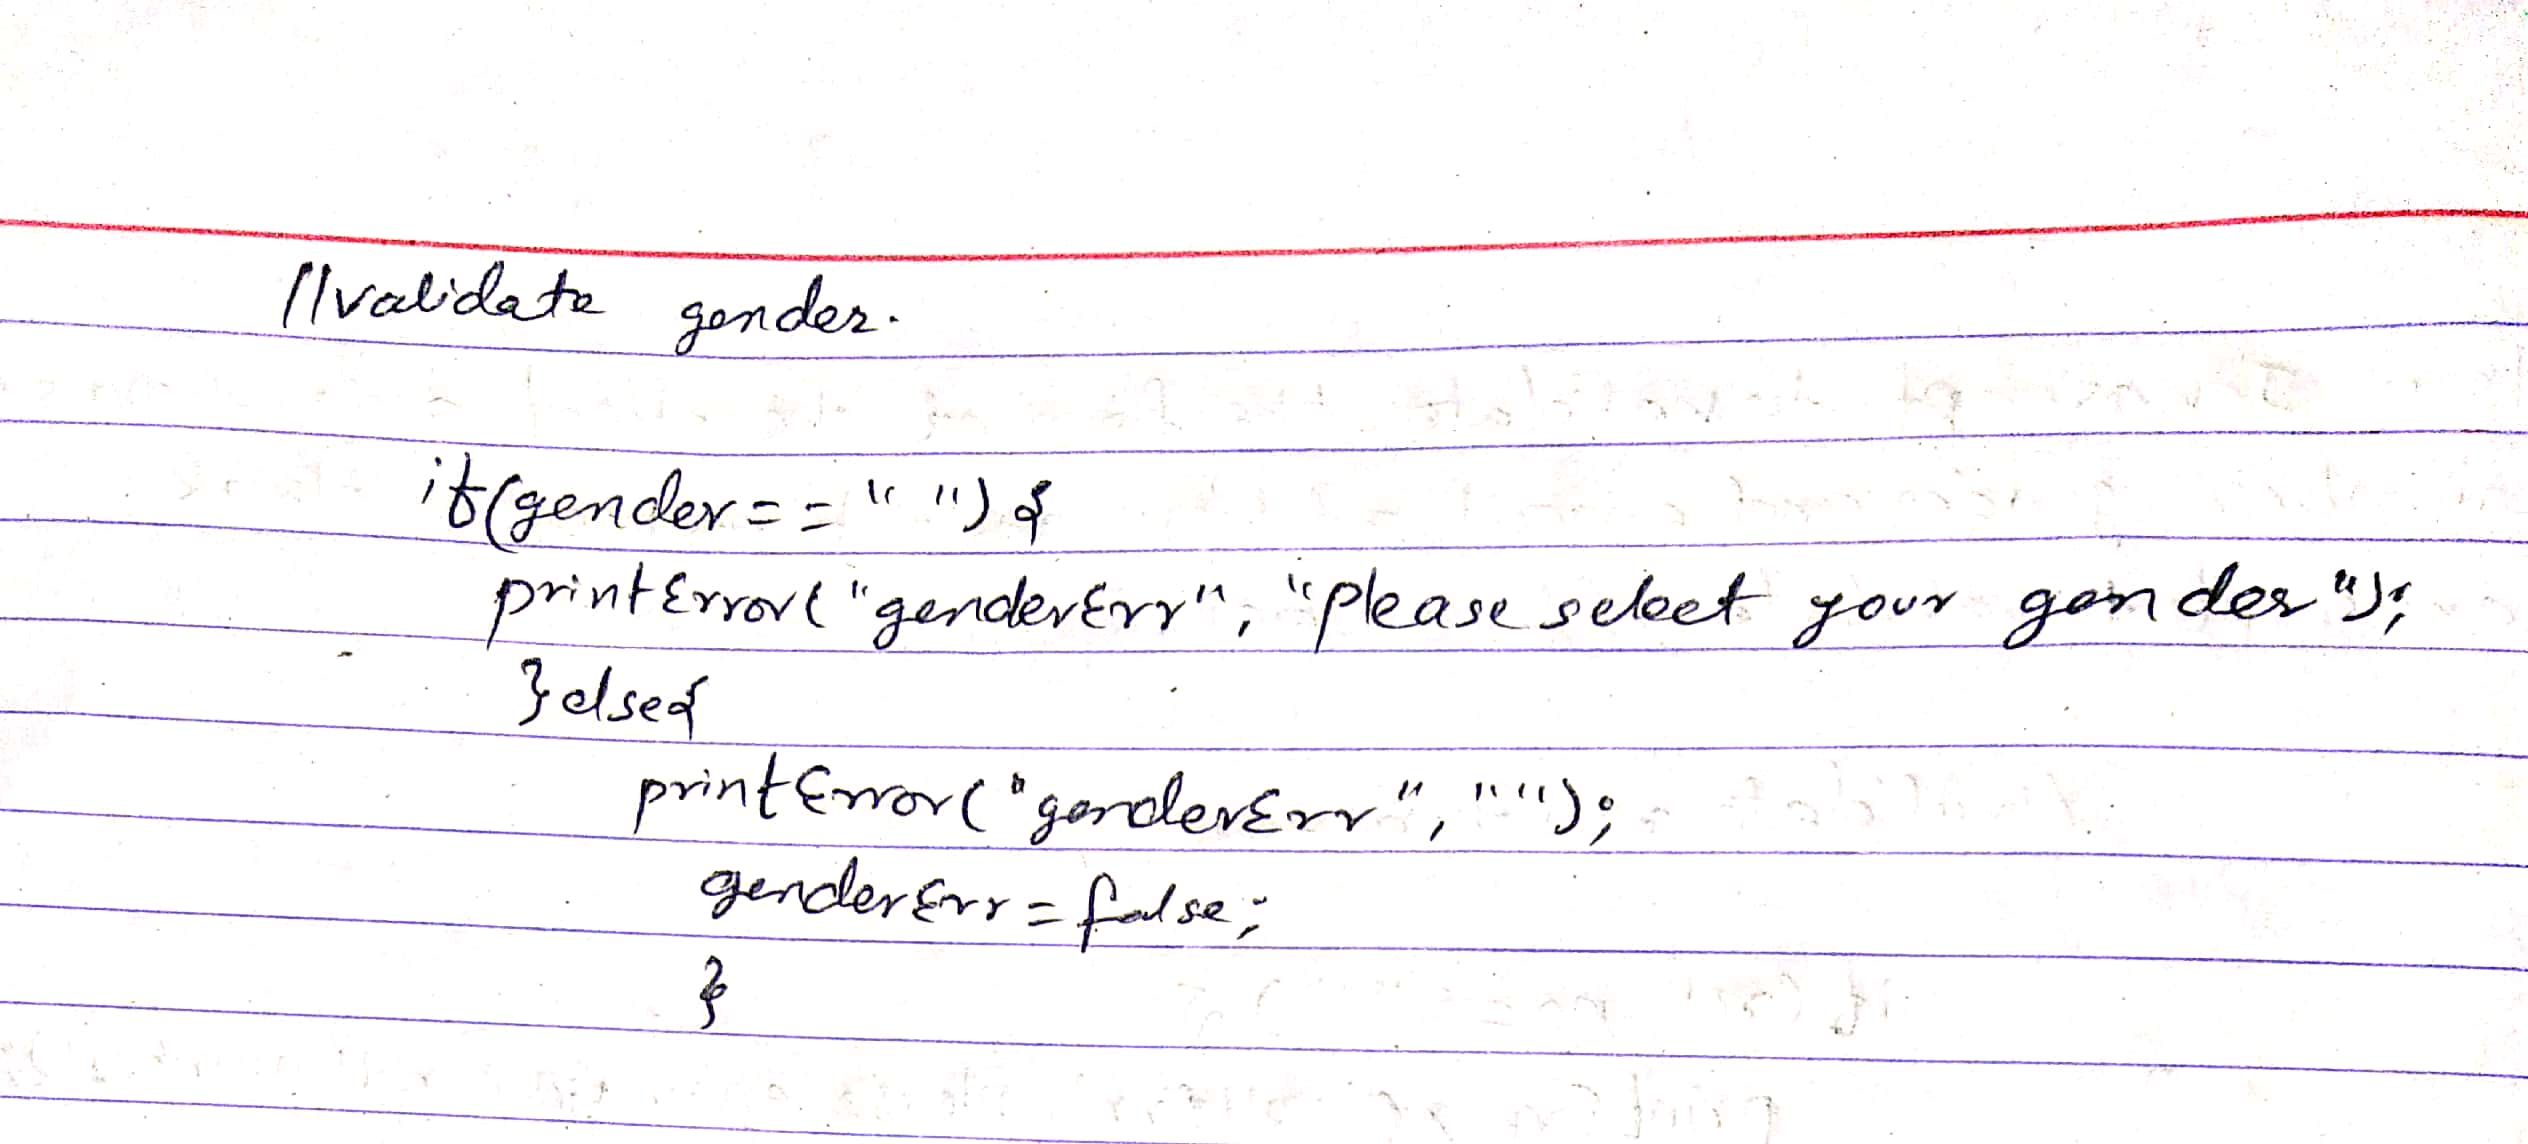 //validate gender.
if(gender== " "){
printError("genderErr", "please select your gender");
}else{
printError("genderErr", "");
genderErr=false;
}